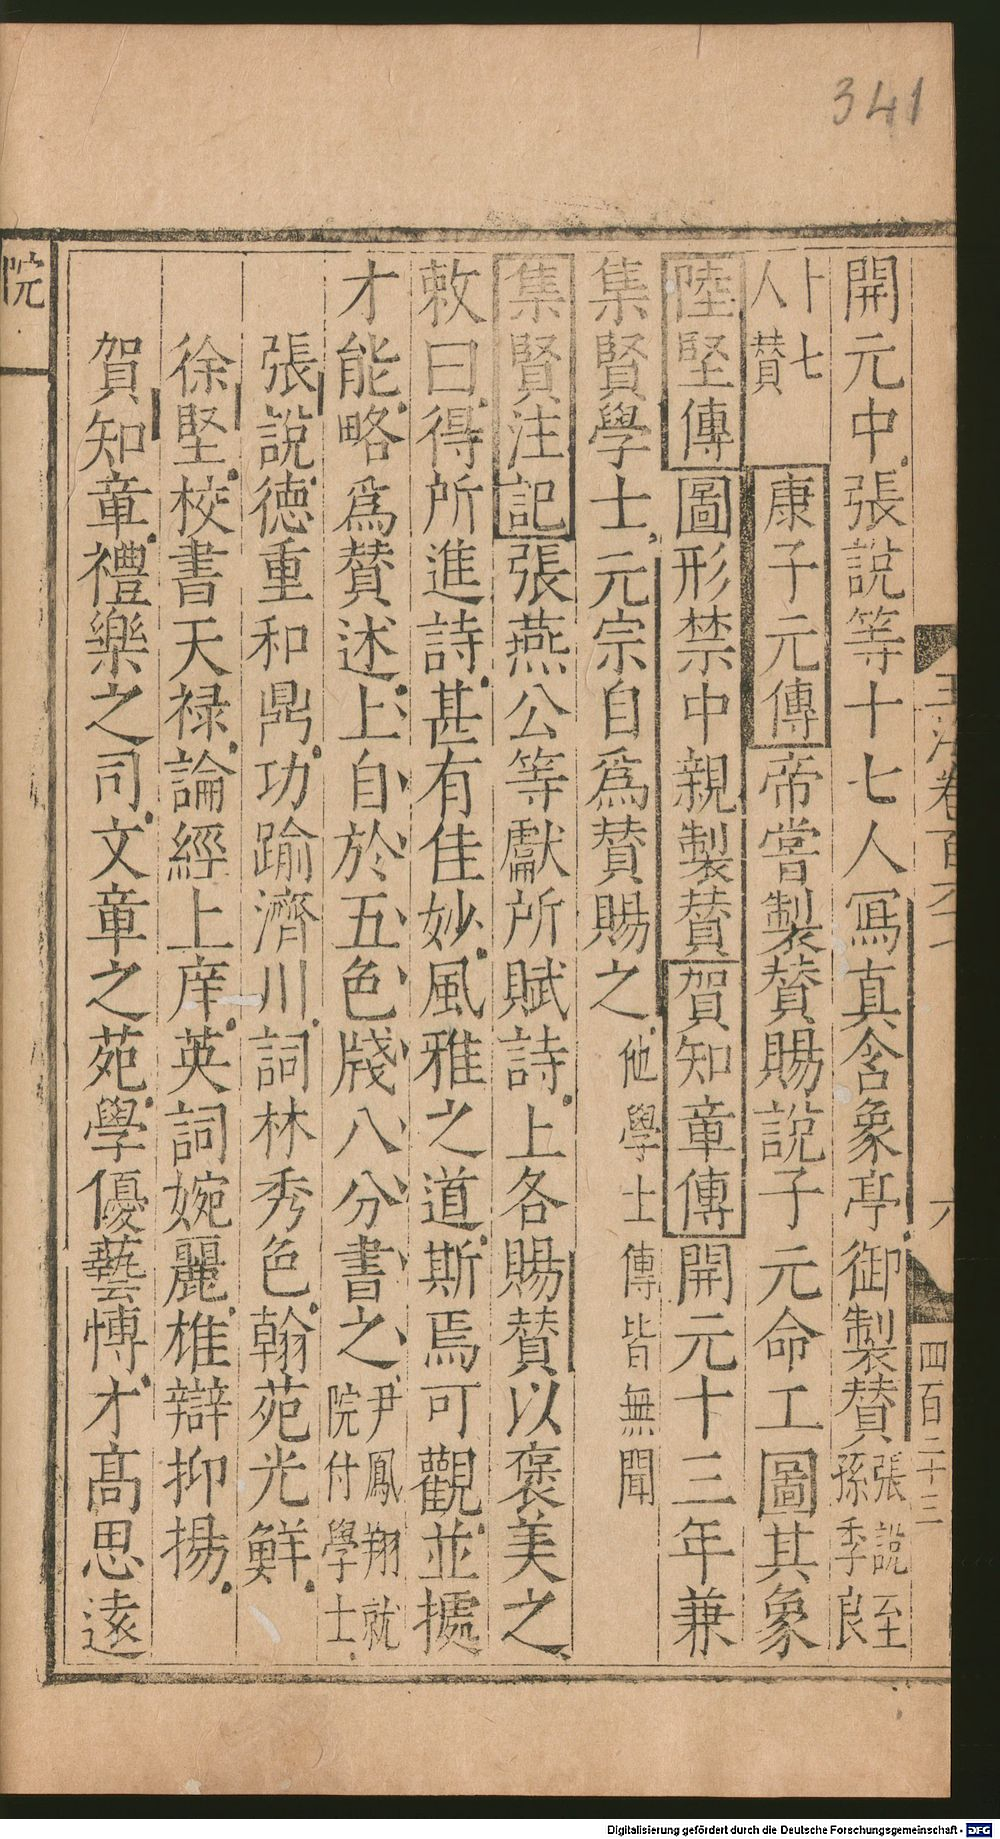 341
四百二十三
六
開元中張說等十七人寫真含象亭御製贊張說至孫季良
十七人贊 康子元傳帝嘗製贊賜說子元命工圖其象
陸堅傳圖形禁中親製贊賀知章傳開元十三年兼
集賢學士元宗自為贊賜之他學士傳皆無聞
集賢注記張燕公等獻所賦詩上各賜贊以褒美之
敕曰得所進詩甚有佳妙風雅之道斯焉可觀並據
才能略為贊述上自於五色牋八分書之尹鳳翔就院付學士
張說德重和鼎功踰濟川詞林秀色翰苑光鮮
徐堅校書天祿論經上庠英詞婉麗雄辯抑揚
賀知章禮樂之司文章之苑學優藝博才高思遠
院
Digitalisierung gefördert durch die Deutsche Forschungsgemeinschaft - DFG